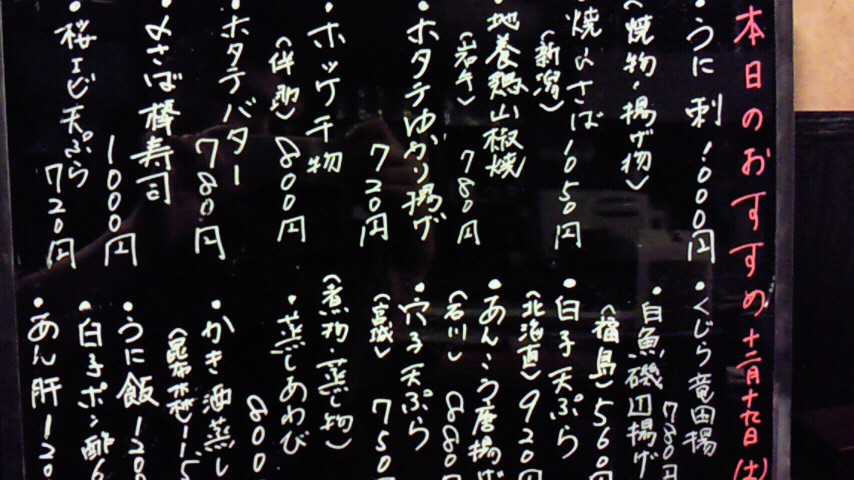 本日のおすすめ 十二月十九日(土)
・うに刺 1000円
(焼物・揚げ物)
・焼〆さば
(新潟) 1050円
・地養鶏山椒焼
(岩手) 780円
・ホタテゆかり揚げ
720円
・ホッケ干物
800円
・ホタテバター
780円
・〆さば棒寿司
1000円
・桜エビ天ぷら
720円
・くじら竜田揚
780円
・白魚磯辺揚げ
(福島) 560円
・白子天ぷら
(北海道) 920円
・あんこう唐揚げ
(石川) 880円
・穴子天ぷら
(宮城) 750
(煮物・蒸し物)
・蒸しあわび
800
・かき酒蒸し
・うに飯 120
・白子ポン酢
・あん肝 120